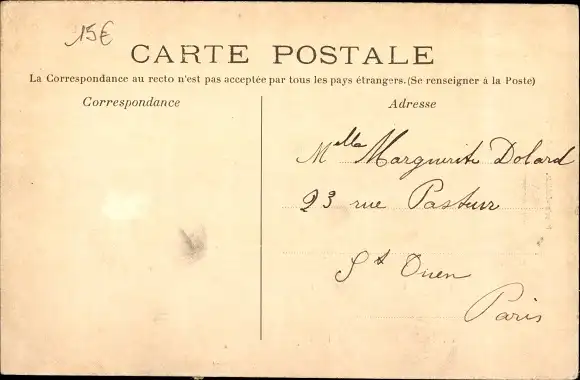 15€
CARTE POSTALE
La Correspondance au recto n'est pas acceptée par tous les pays étrangers. (Se renseigner à la Poste)
Correspondance
Adresse
Melle Marguerite Dolard
23 rue Pasteur
St Ouen
Paris